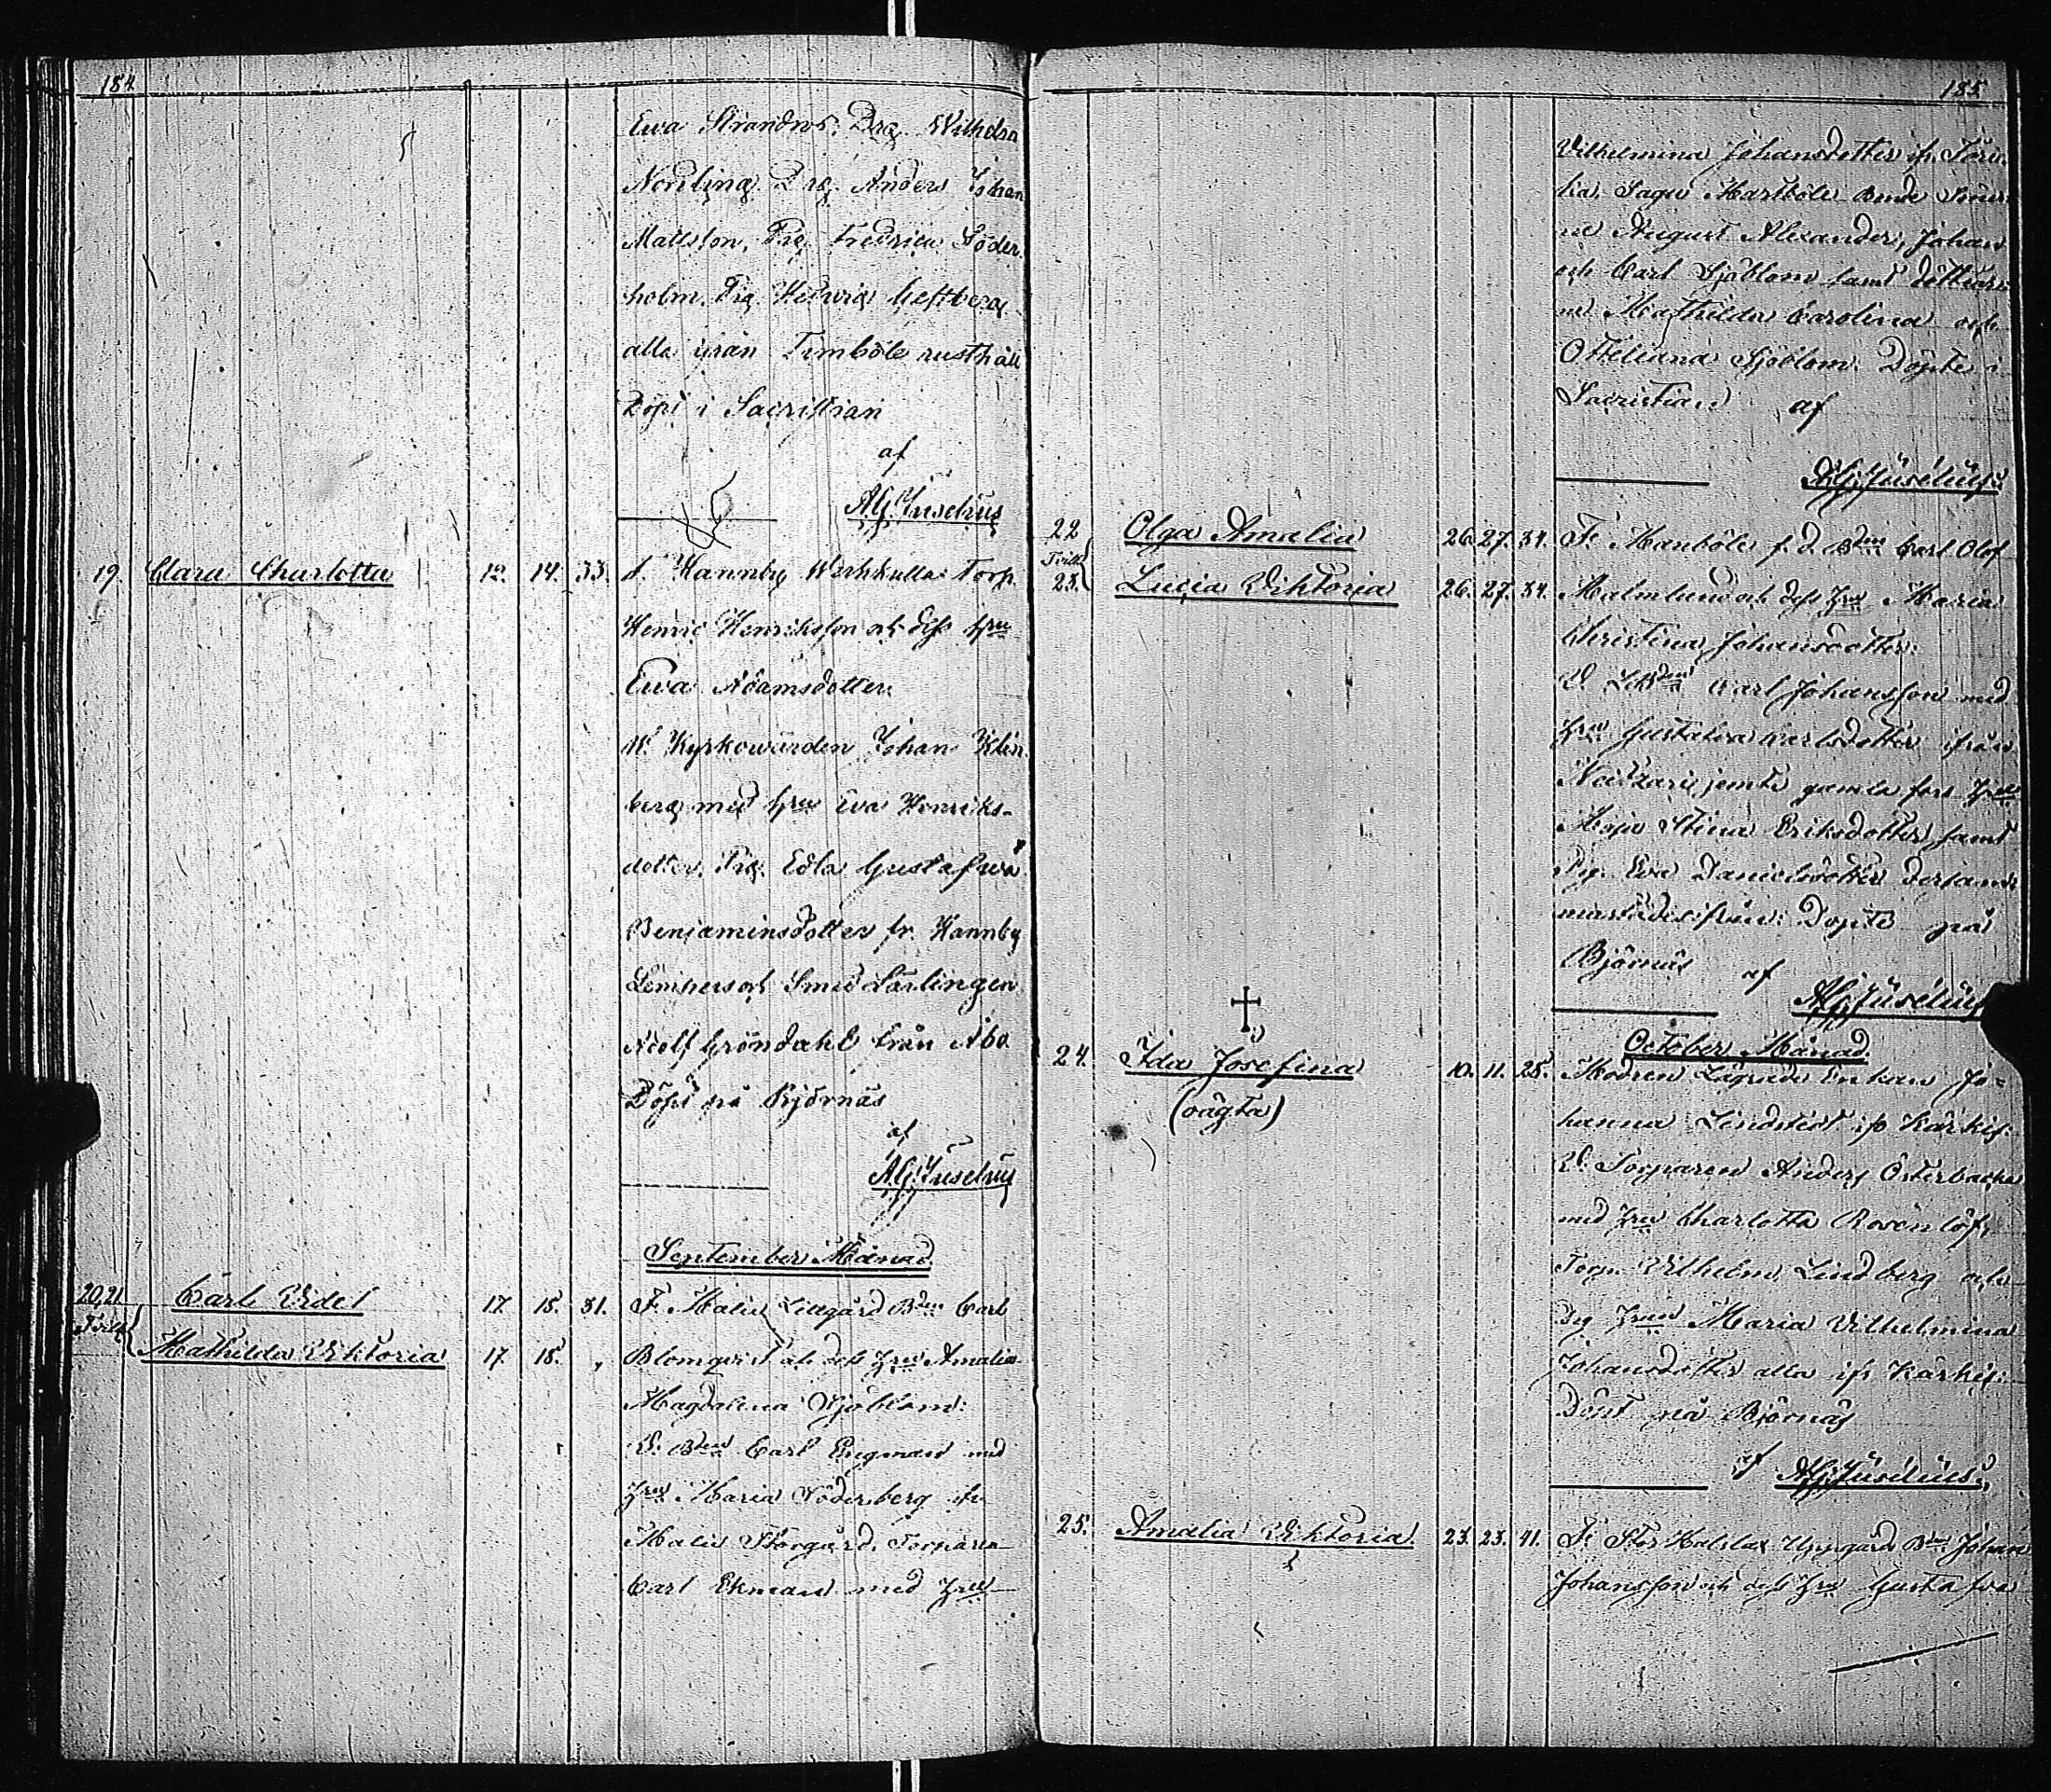 184
Ewa Strandros, Drg. Wilhelm
Nordling. Drg. Anders Johan
Mattsson, Pig. Fredrica Söder-
holm. Pig. Hedwig
alla ifrån Timböle rusthåll
Döpt i Sacristian
af
A.G. Juselius
19. Clara Charlotta 12. 14. 33. f. Hannby Torp.
Henric Henriksson och dess hru
Ewa Adamsdotter.
W. Kyrkowärden Johan Klin-
berg med hru Eva Henriks-
dotter, Pig. Edla Gustafwa
Benjaminsdotter fr. Hannby
och Smed Lärlingen
Adolf Gröndahl från Åbo
Döpt på Björnäs
af
A.G. Juselius
September Månad.
20,21 Carl Videl 17. 18. 31. F. Malu Lillgård Bden Carl
Mathilda Viktoria 17. 18. " Blomqvist och dess Hru Amalia
Magdalena Sjöblom:
V. Bden Carl Engman med
Hru Maria Söderberg ifr
Malu Storgård. Torparen
Carl Ekman med Hru
185.
Vilhelmina Johansdotter ifr.
August Alexander, Johan
och Carl Sjöblom samt döttrar-
ne Mathilda Carolina och
Otteliana Sjöblom. Döpte i
Sacristian af
A.G. Juselius.
22 Olga Amalia 26. 27. 34. Fr. f. d. Bden Carl Olof
23. Lucia Viktoria 26. 27. 34. Malmlund och dess Hru Maria
Christina Johansdotter.
V. Carl Johansson med
Hru Gustafva Carlsdotter ifrån
jemte gamla Hru
Maja Stina Eriksdotter samt
Pig. Eva Danielsdotter dersam-
mastädes ifrån: Döpte på
Björnäs af
A.G. Juselius
October Månad.
24. Ida Josefina 10. 11. 25. Modren Enkan Jo-
(oägta) hanna Lindstedt ifr Kärkis.
V. Torparen Anders Österbacka
med Hru Charlotta Rosenlöf,
Torp. Vilhelm Lindberg och
Hrun Maria Vilhelmina
Johansdotter alla ifr Kärkis:
Döpt på Björnäs
af A.G. Juselius.
25. Amalia Viktoria. 23. 23. 41. Fr Stor Uppgård Bden Johan
Johansson och dess Hru Gustafva